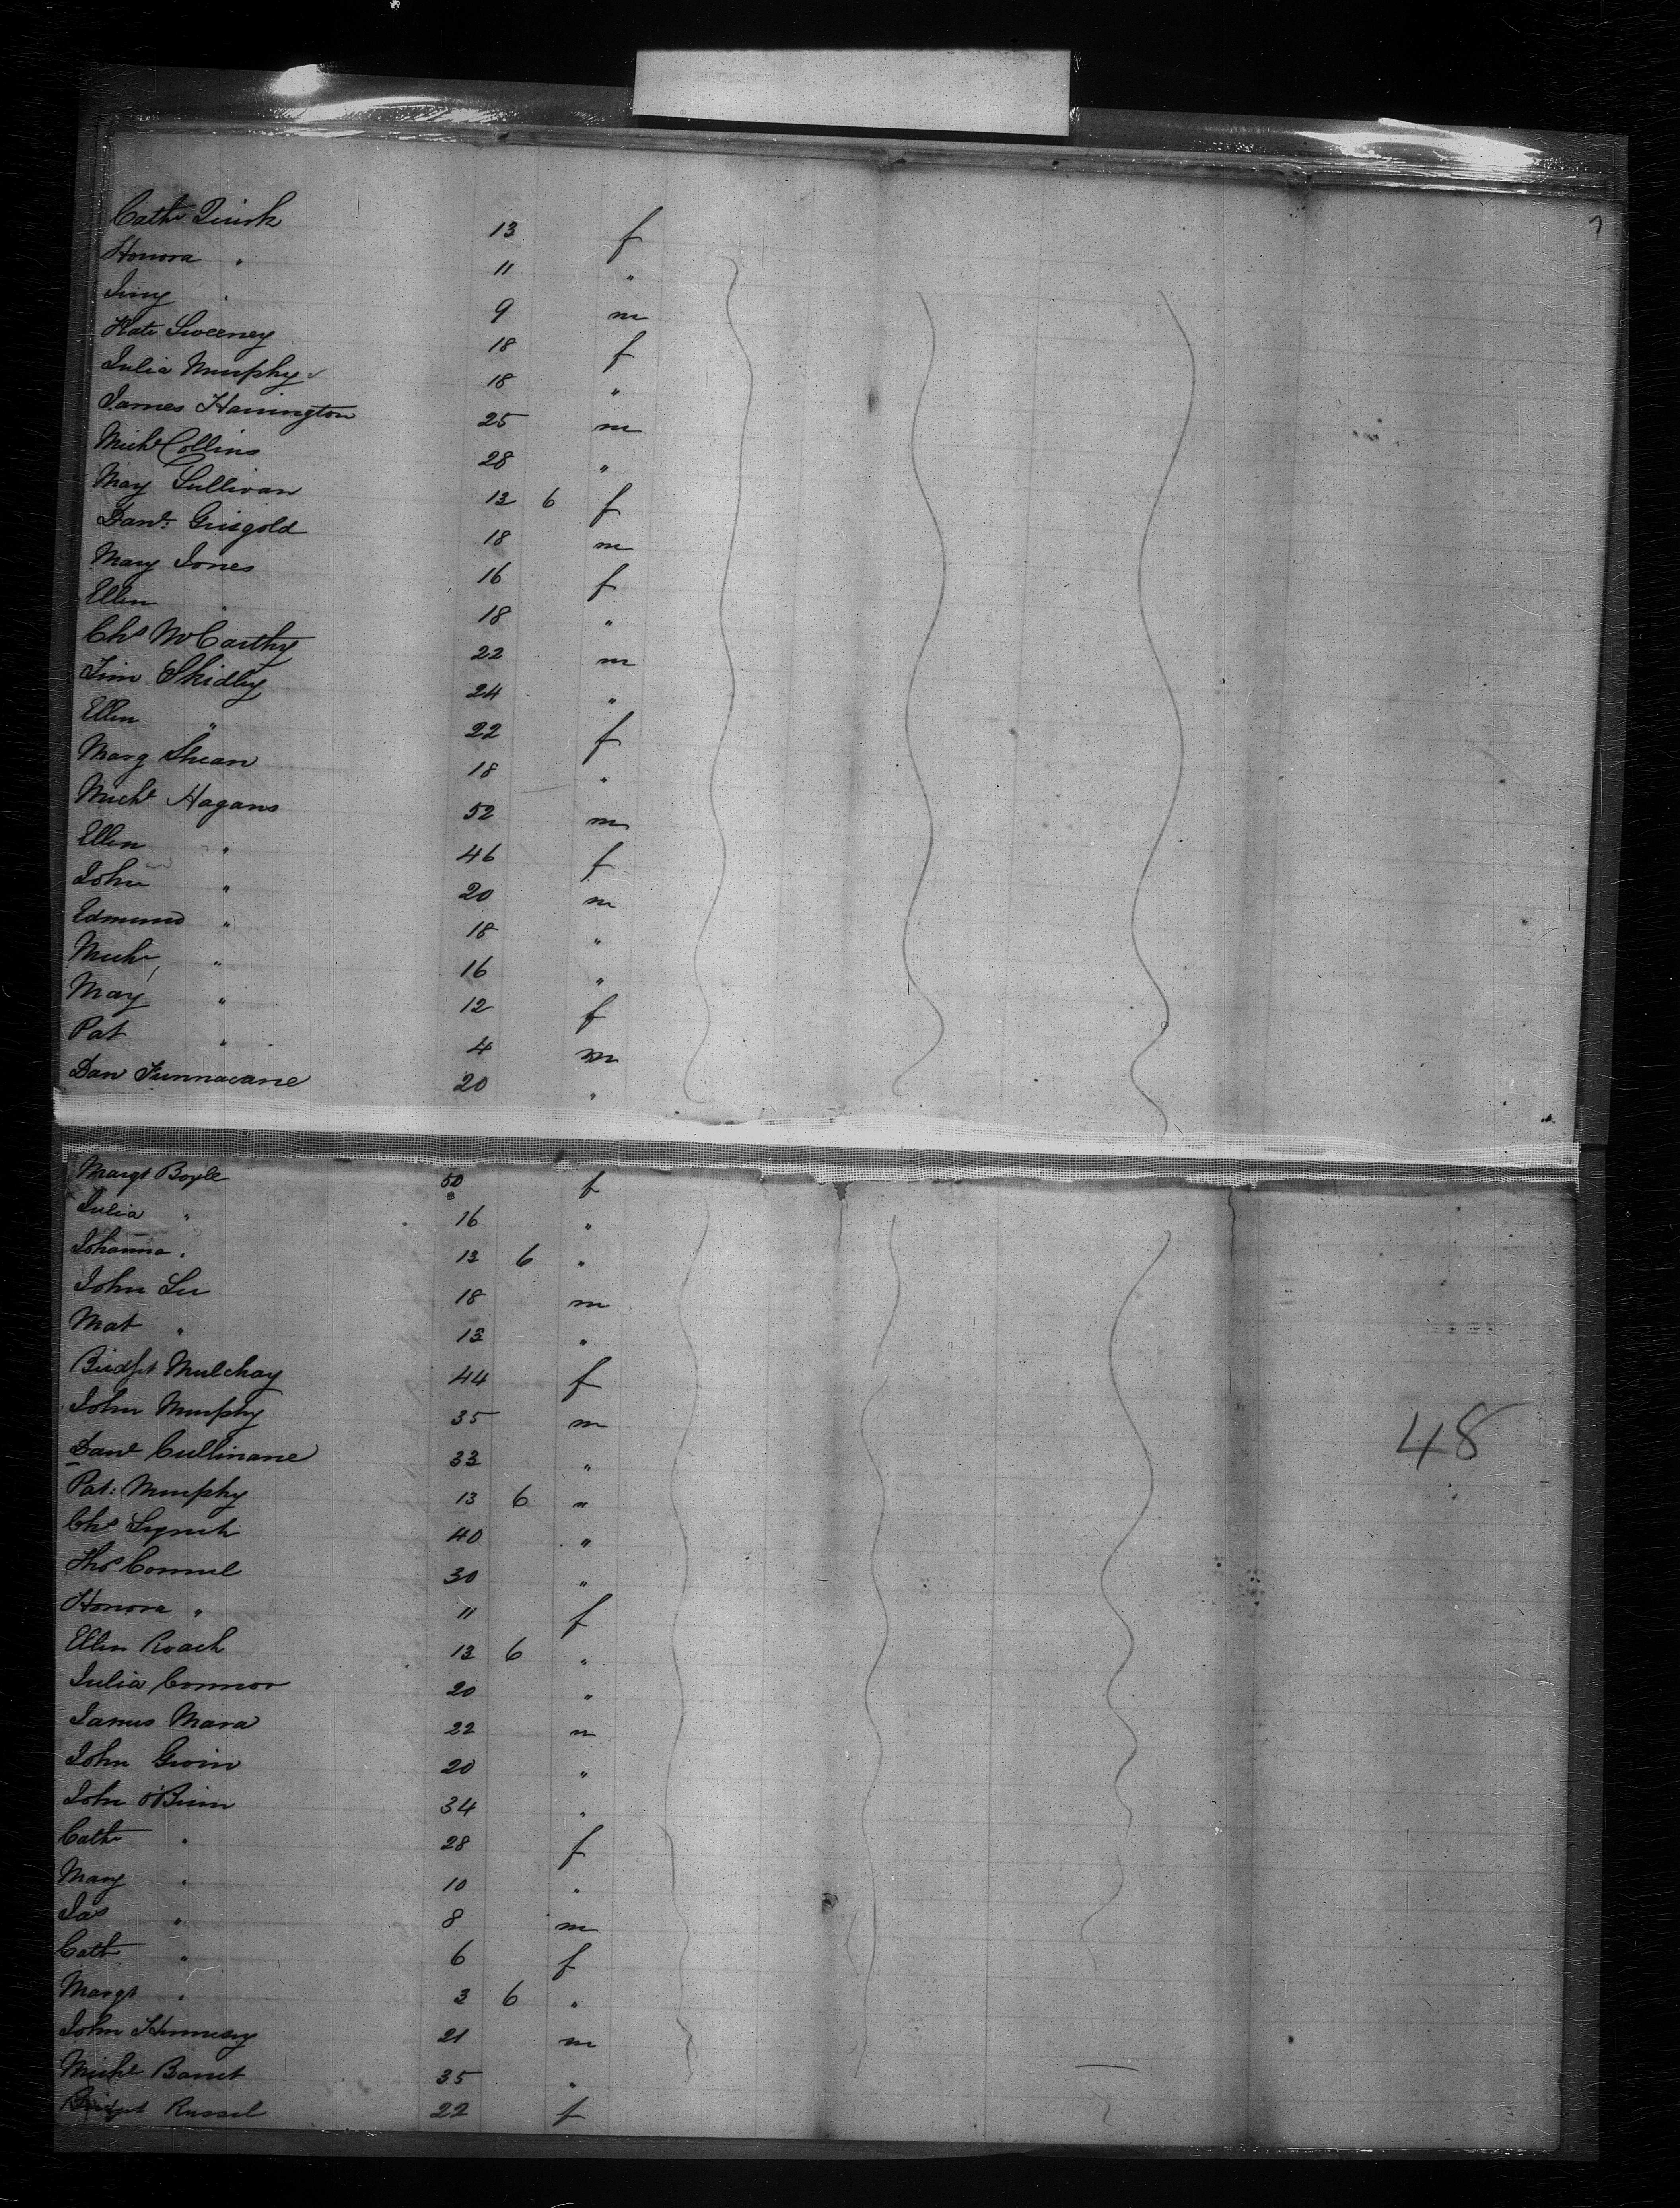 7
Cathe Quirk 13 f
Honora " 11 "
Jmy " 9 m
Kate Sweeney 18 f
Julia Murphy 18 "
James Harrington 25 m
Michl Collins 28 "
May Sullivan 13 6 f
Danl: Grisgold 18 m
Mary Jones 16 f
Ellen " 18 "
Chs McCarthy 22 m
Tim Skidley 24 "
Ellen " 22 f
Marg Shean 18 "
Michl Hagans 52 m
Ellen " 46 f
John " 20 m
Edmund " 18 "
Michl " 16 "
May " 12 f
Pat " 4 m
Dan Funnacane 20 "
Margt Boyle 50 f
Julia " 16 "
Johanna " 13 6 "
John Lee 18 m
Mat " 13 "
Bridget Mulchay 44 f
John Murphy 35 m
48
Danl Cullinane 33 "
Pat: Murphy 13 6 "
Chs Lynch 40 "
Thos Connel 30 "
Honora " 11 f
Ellen Roach 13 6 "
Julia Connor 20 "
James Mara 22 m
John Gwin 20 "
John O'Brien 34 "
Cath " 28 f
Mary " 10 "
Jas " 8 m
Cath " 6 f
Margt " 3 6 "
John Hennesy 21 m
Michl Barret 35 "
Bridget Russel 22 f